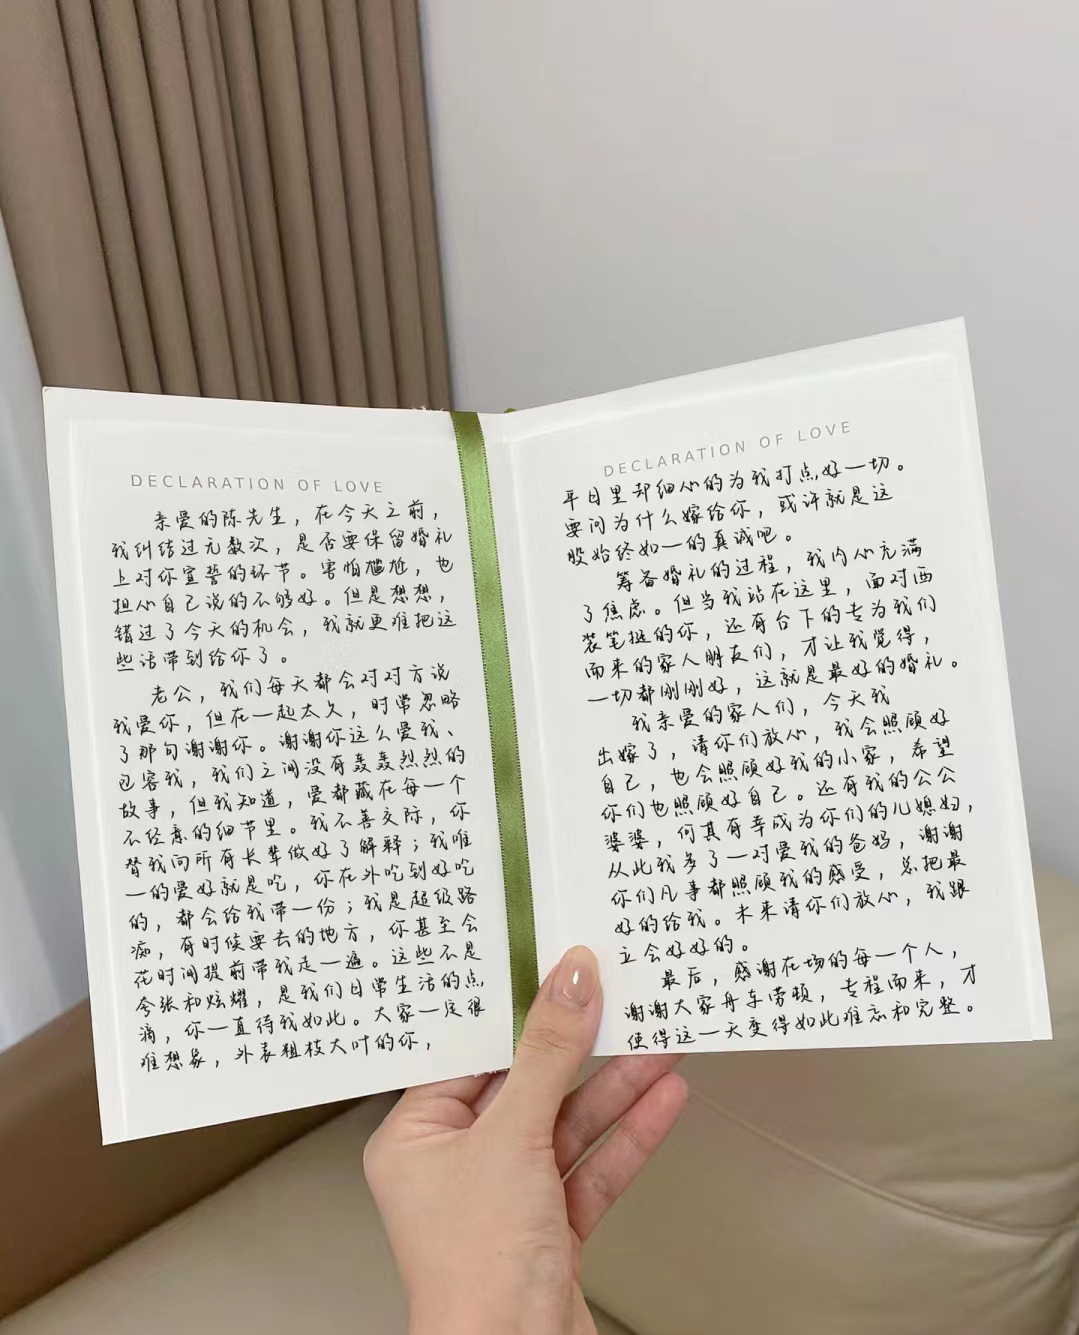 DECLARATION OF LOVE
亲爱的陈先生，在今天之前，
我纠结过无数次，是否要保留婚礼
上对你宣誓的环节。害怕尴尬，也
担心自己说的不够好。但是想想，
错过了今天的机会，我就更难把这
些话带到给你了。
老公，我们每天都会对对方说
我爱你，但在一起太久，时常忽略
了那句谢谢你。谢谢你这么爱我、
包容我，我们之间没有轰轰烈烈的
故事，但我知道，爱都藏在每一个
不经意的细节里。我不善交际，你
替我向所有长辈做好了解释；我唯
一的爱好就是吃，你在外吃到好吃
的，都会给我带一份；我是超级路
痴，有时候要去的地方，你甚至会
花时间提前带我走一遍。这些不是
夸张和炫耀，是我们日常生活的点
滴，你一直待我如此。大家一定很
难想象，外表粗枝大叶的你，
DECLARATION OF LOVE
平日里却细心的为我打点好一切。
要问为什么嫁给你，或许就是这
股始终如一的真诚吧。
筹备婚礼的过程，我内心充满
了焦虑。但当我站在这里，面对西
装笔挺的你，还有台下的专为我们
而来的家人朋友们，才让我觉得，
一切都刚刚好，这就是最好的婚礼。
我亲爱的家人们，今天我
出嫁了，请你们放心，我会照顾好
自己，也会照顾好我的小家，希望
你们也照顾好自己。还有我的公公
婆婆，何其有幸成为你们的儿媳妇，
从此我多了一对爱我的爸妈，谢谢
你们凡事都照顾我的感受，总把最
好的给我。未来请你们放心，我跟
立会好好的。
最后，感谢在场的每一个人，
谢谢大家舟车劳顿，专程而来，才
使得这一天变得如此难忘和完整。